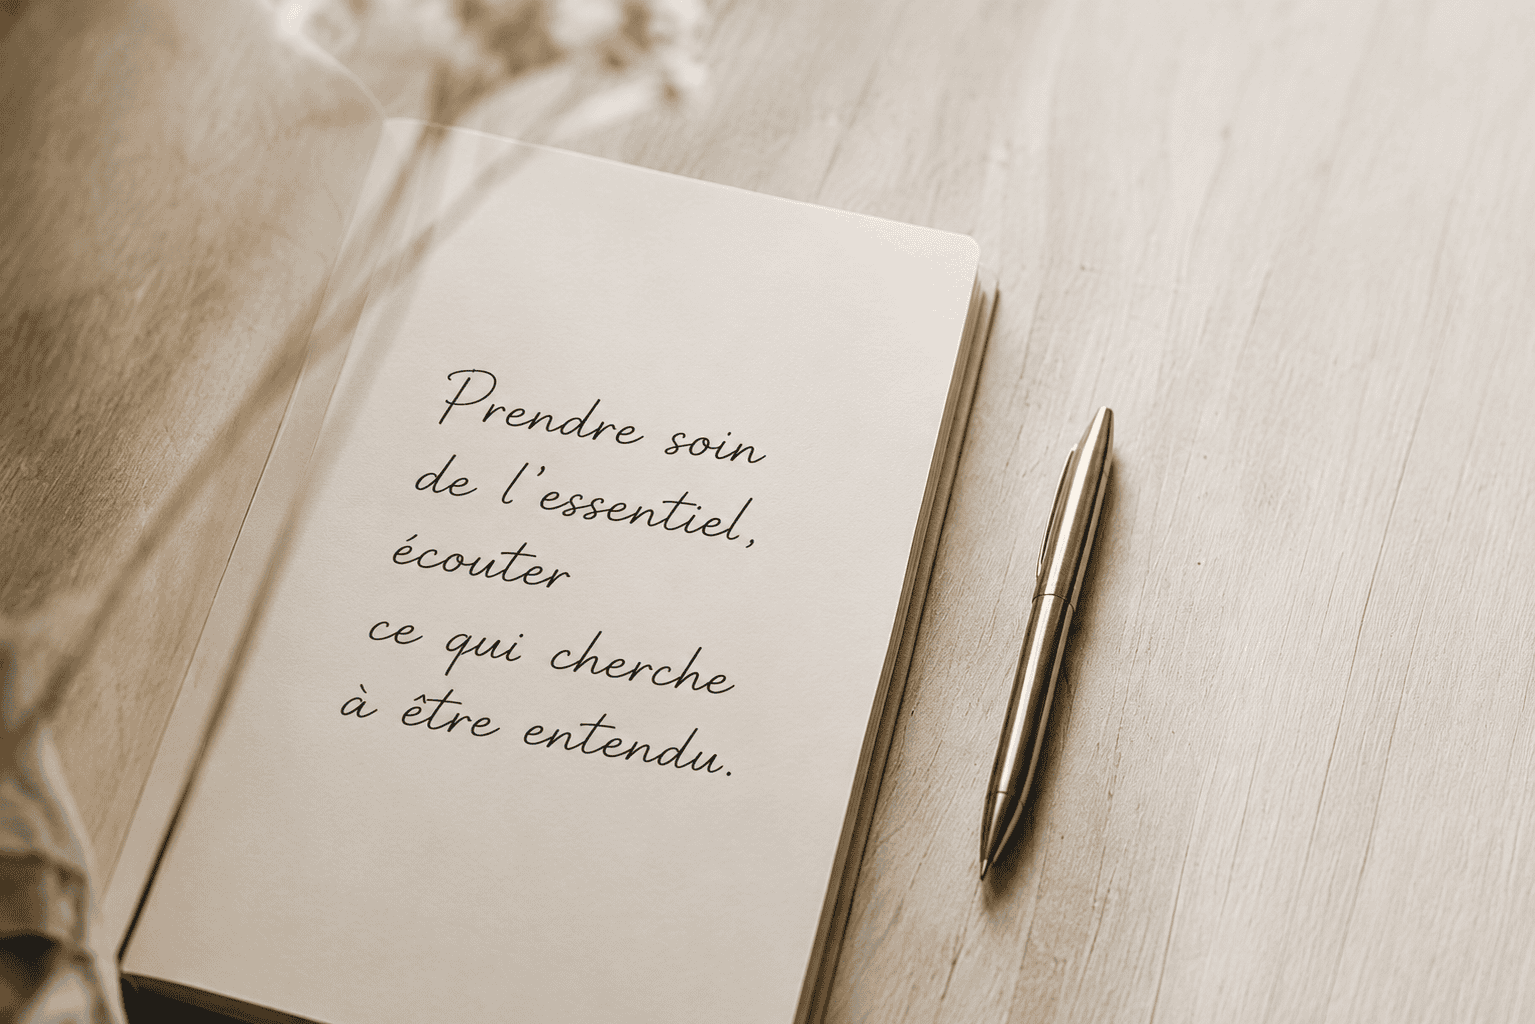 Prendre soin
de l'essentiel,
écouter
ce qui cherche
à être entendu.